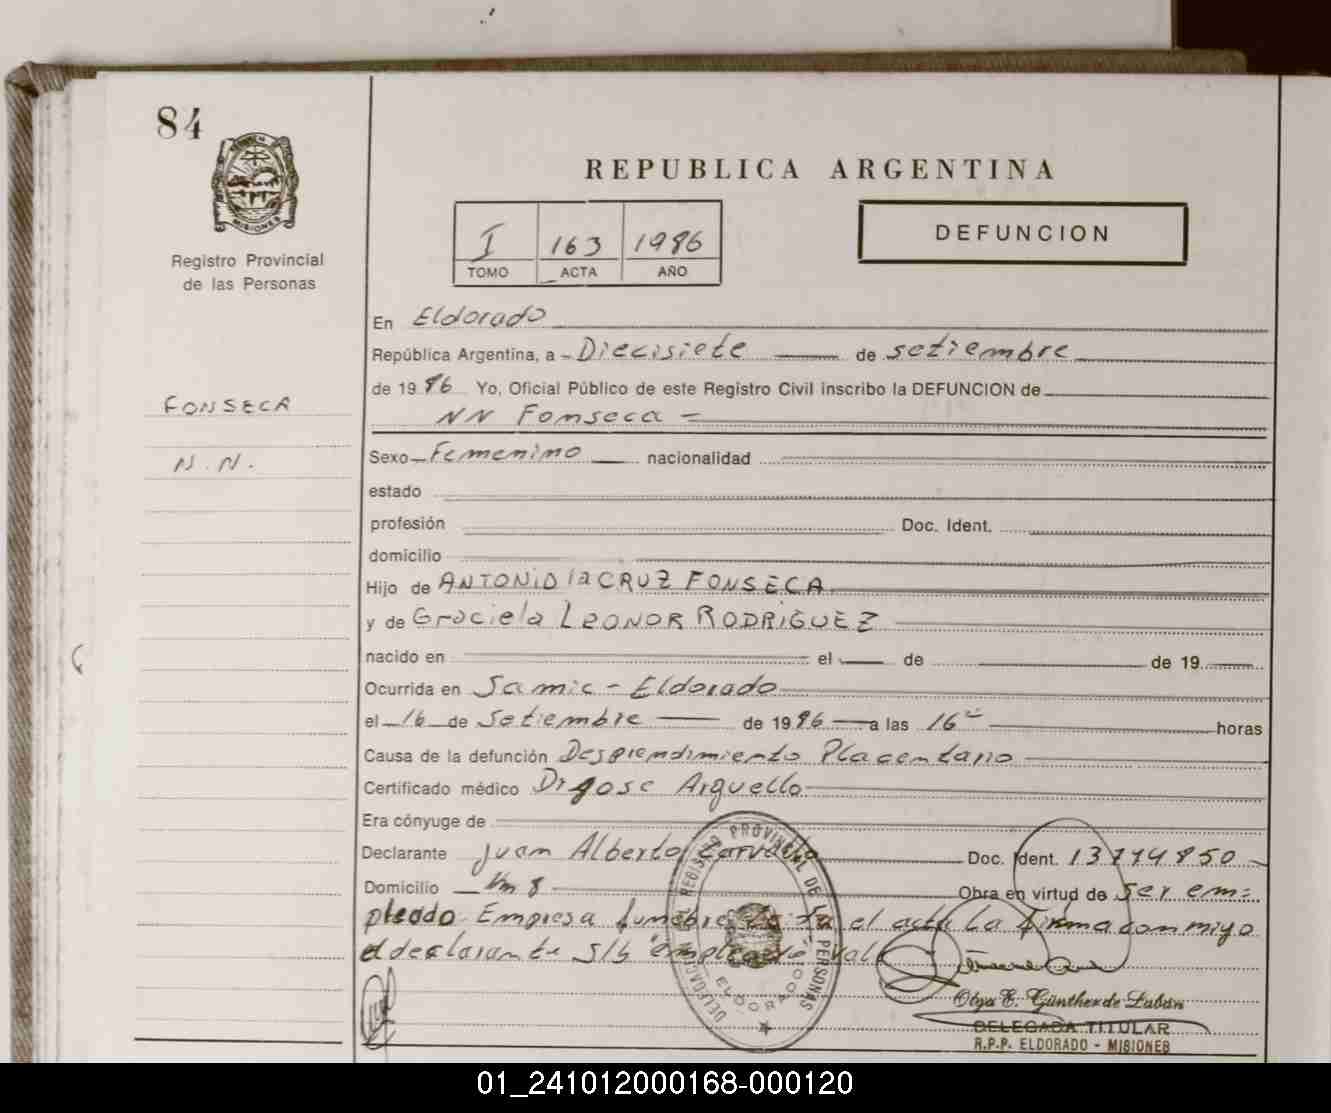 84
MISIONES
Registro Provincial
de las Personas
REPUBLICA ARGENTINA
I 163 1986
TOMO ACTA AÑO
DEFUNCION
En Eldorado
República Argentina, a Diecisiete de setiembre
de 1986 Yo, Oficial Público de este Registro Civil inscribo la DEFUNCION de
NN Fonseca =
FONSECA
N.N.
Sexo Femenino nacionalidad
estado
profesión Doc. Ident.
domicilio
Hijo de ANTONIO la CRUZ FONSECA
y de Graciela LEONOR RODRIGUEZ
nacido en el de de 19
Ocurrida en Samic - Eldorado
el 16 de Setiembre de 1986 a las 16 horas
Causa de la defunción Desprendimiento Placentario
Certificado médico Dr Jose Arguello
Era cónyuge de
Declarante Juan Alberto Doc. Ident. 13714850
Domicilio Km 8 Obra en virtud de Ser em=
pleado Empresa funebre el acta La firma conmigo
el declarante S/b "empleado" Vale
DELEGACION REGISTRO PROVINCIAL DE LAS PERSONAS
ELDORADO
Olga E. Günther de Labán
DELEGADA TITULAR
R.P.P. ELDORADO - MISIONES
01_241012000168-000120